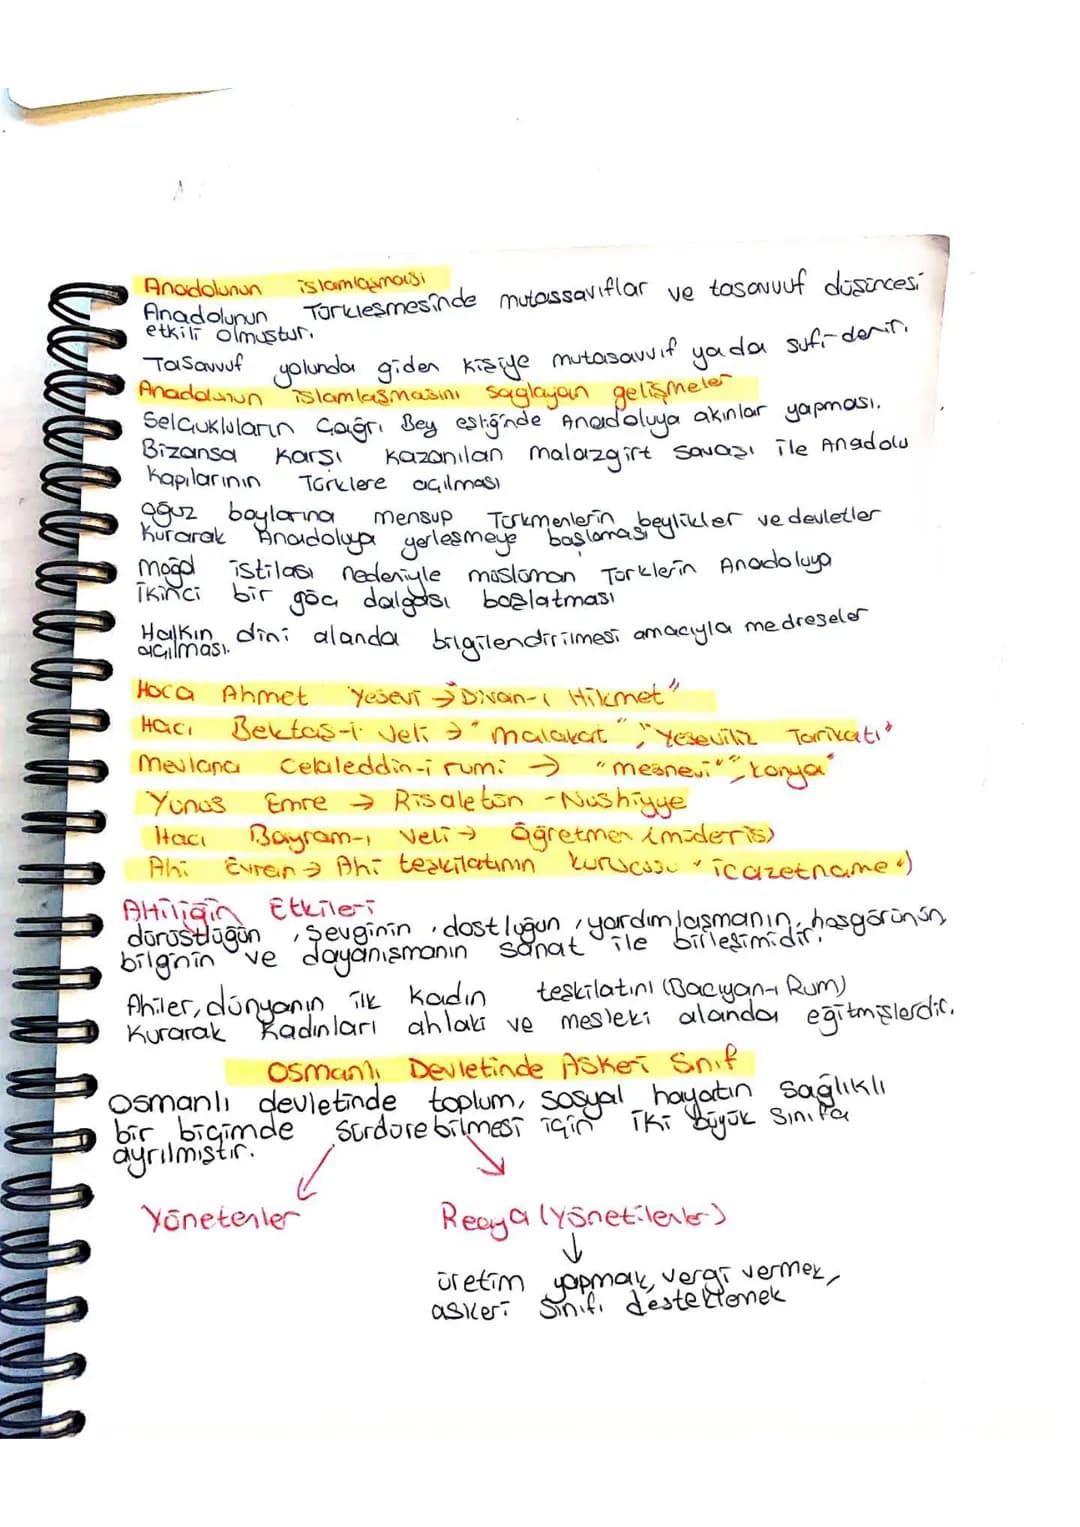 Anadolunun islamlaşması
Anadolunun Türkleşmesinde mutassavıflar ve tasavvuf düşüncesi
etkili olmuştur.
Tasavvuf yolunda giden kişiye mutasavvıf yada sufi denir.
Anadolunun islamlaşmasını sağlayan gelişmeler
Selçukluların Çağrı Bey eşliğinde Anadoluya akınlar yapması.
Bizansa karşı kazanılan malazgirt savaşı ile Anadolu
kapılarının Türklere açılması
oğuz boylarına mensup Türkmenlerin beylikler ve devletler
kurarak Anadoluya yerleşmeye başlaması
moğol istilası nedeniyle müslüman Türklerin Anadoluya
ikinci bir göç dalgası başlatması
Halkın dini alanda bilgilendirilmesi amacıyla medreseler
açılması.
Hoca Ahmet Yesevi → "Divan-ı Hikmet"
Hacı Bektaş-i Veli → "malakat", "Yesevilik Tarikatı"
Mevlana Celaleddin-i rumi → "mesnevi" "konya"
Yunus Emre → Risaletün -Nushiyye
Hacı Bayram-ı Veli → öğretmen (müderis)
Ahi Evran → Ahi teşkilatının kurucusu "icazetname")
AHiliğin Etkileri
dürüstlüğün, sevginin, dostluğun, yardımlaşmanın, hoşgörünün,
bilginin ve dayanışmanın sanat ile birleşimidir.
Ahiler, dünyanın ilk kadın teşkilatını (Bacıyan-ı Rum)
kurarak kadınları ahlaki ve mesleki alanda eğitmişlerdir.
Osmanlı Devletinde Askeri Sınıf
Osmanlı devletinde toplum, sosyal hayatın sağlıklı
bir biçimde sürdürebilmesi için iki büyük sınıfa
ayrılmıştır.
Yönetenler
Reaya (Yönetilenler)
üretim yapmak, vergi vermek,
askeri sınıfı desteklemek